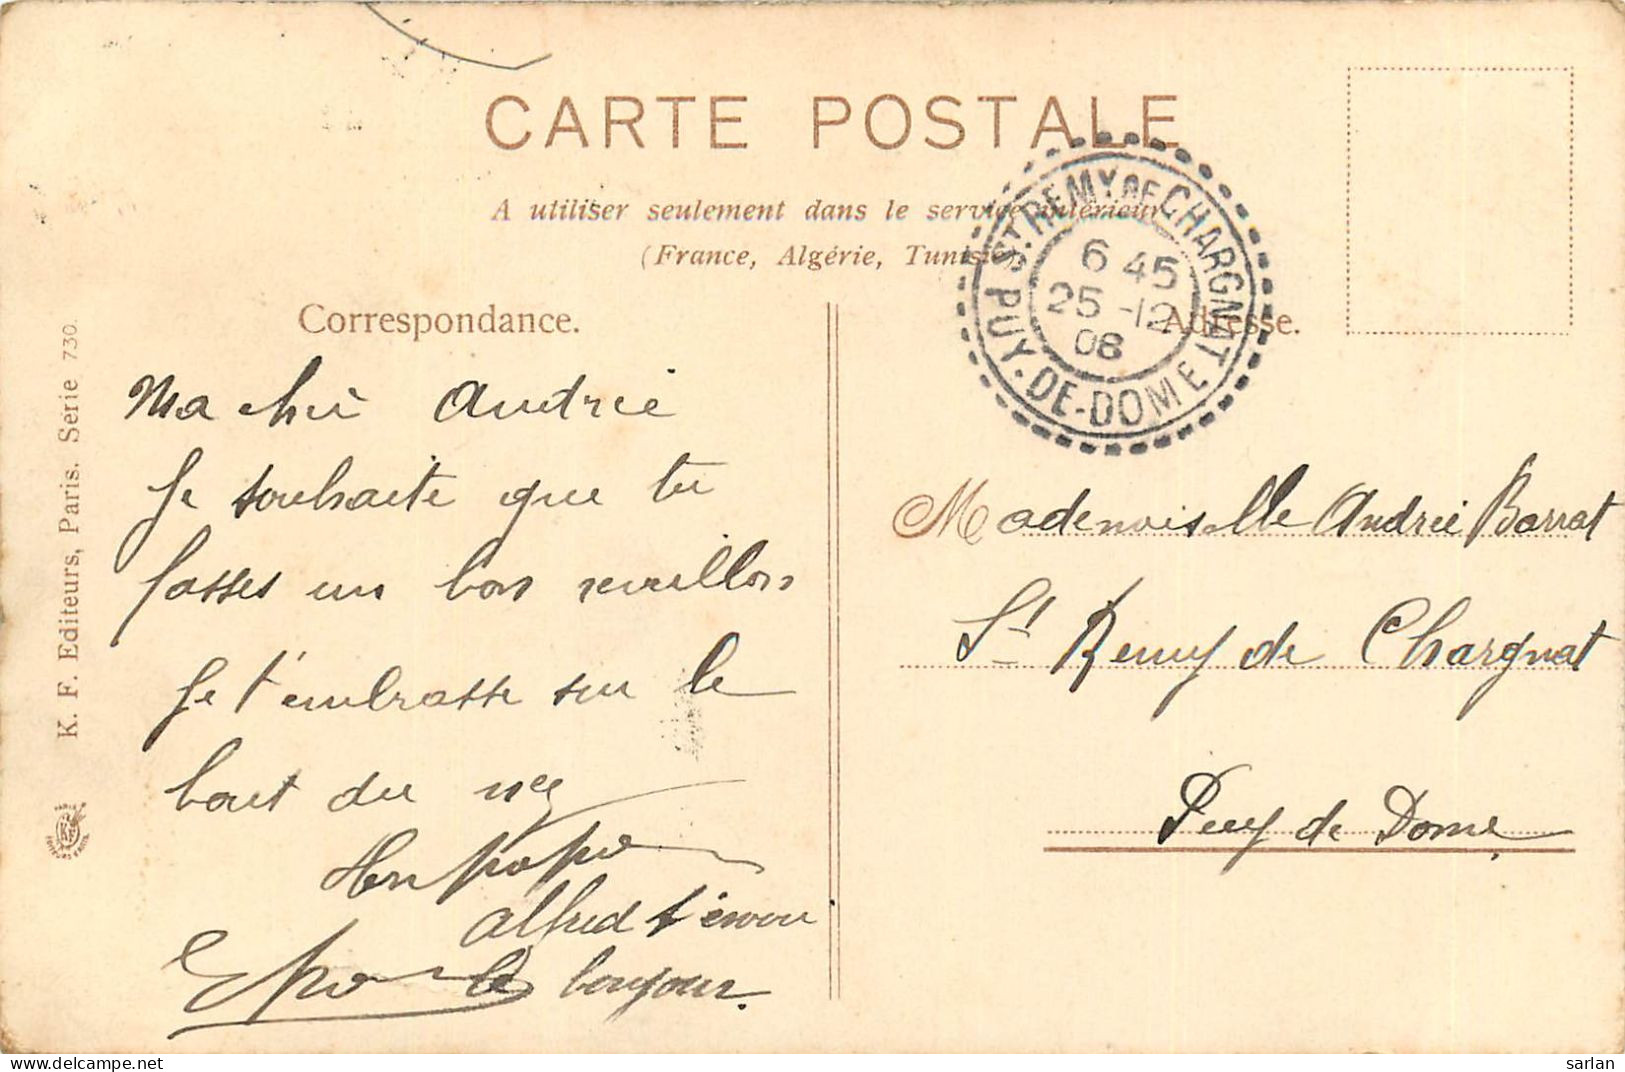 CARTE POSTALE
A utiliser seulement dans le service intérieur
(France, Algérie, Tunisie)
ST. REMY DE CHARGNAT
6 45
25 -12
08
PUY-DE-DOME
Correspondance.
Adresse.
K. F. Editeurs, Paris. Série 730.
Ma chère Andrée
Je souhaite que tu
passes un bon reveillon
Je t'embrasse sur le
bout du nez
Ton papa
Alfred t'envoie
le bonjour.
Mademoiselle Andrée Barrat
St Remy de Chargnat
Puy de Dome
sarlan